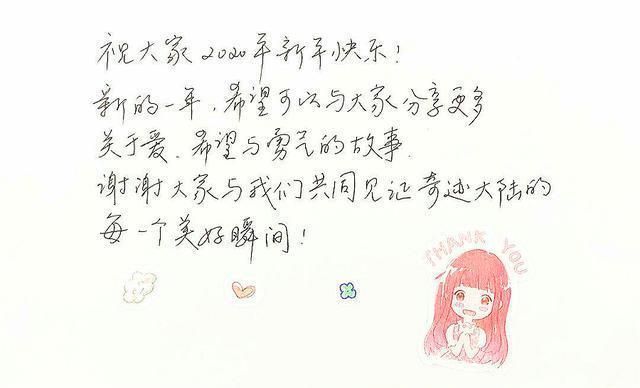 祝大家2020年新年快乐！
新的一年，希望可以与大家分享更多
关于爱、希望与勇气的故事.
谢谢大家与我们共同见证奇迹大陆的
每一个美好瞬间！
THANK YOU